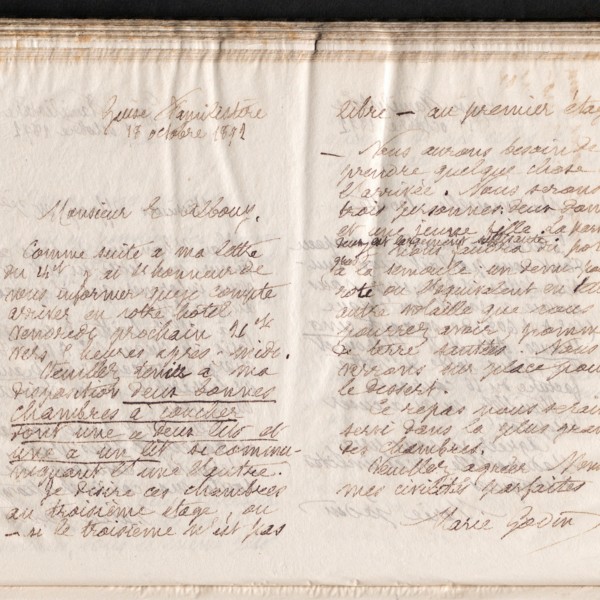 Guise Familistère
17 octobre 1891
Monsieur E. Alboux.
Comme suite à ma lettre
du 4 j'ai l'honneur de
vous informer que je compte
arriver en votre hôtel
Vendredi prochain
vers 2 heures après-midi.
Veuillez tenir à ma
disposition deux bonnes
chambres à coucher
dont une à deux lits et
une à un lit se commu-
niquant l'une l'autre.
Je désire ces chambres
au troisième étage, ou
— si le troisième n'est pas
libre — au premier étag
— Nous aurons besoin de
prendre quelque chose
l'arrivée. Nous serons
trois personnes: deux dam
et une jeune fille.
Il nous faudra du po
à la semoule: un demi pou
rôti ou l'équivalent en
autre volaille que vous
pourrez avoir pomm
de terre sautées. Nous
verrons sur place pour
le dessert.
Ce repas nous serait
servi dans la plus gran
des chambres.
Veuillez agréer Mons
mes civilités parfaites
Marie Godin